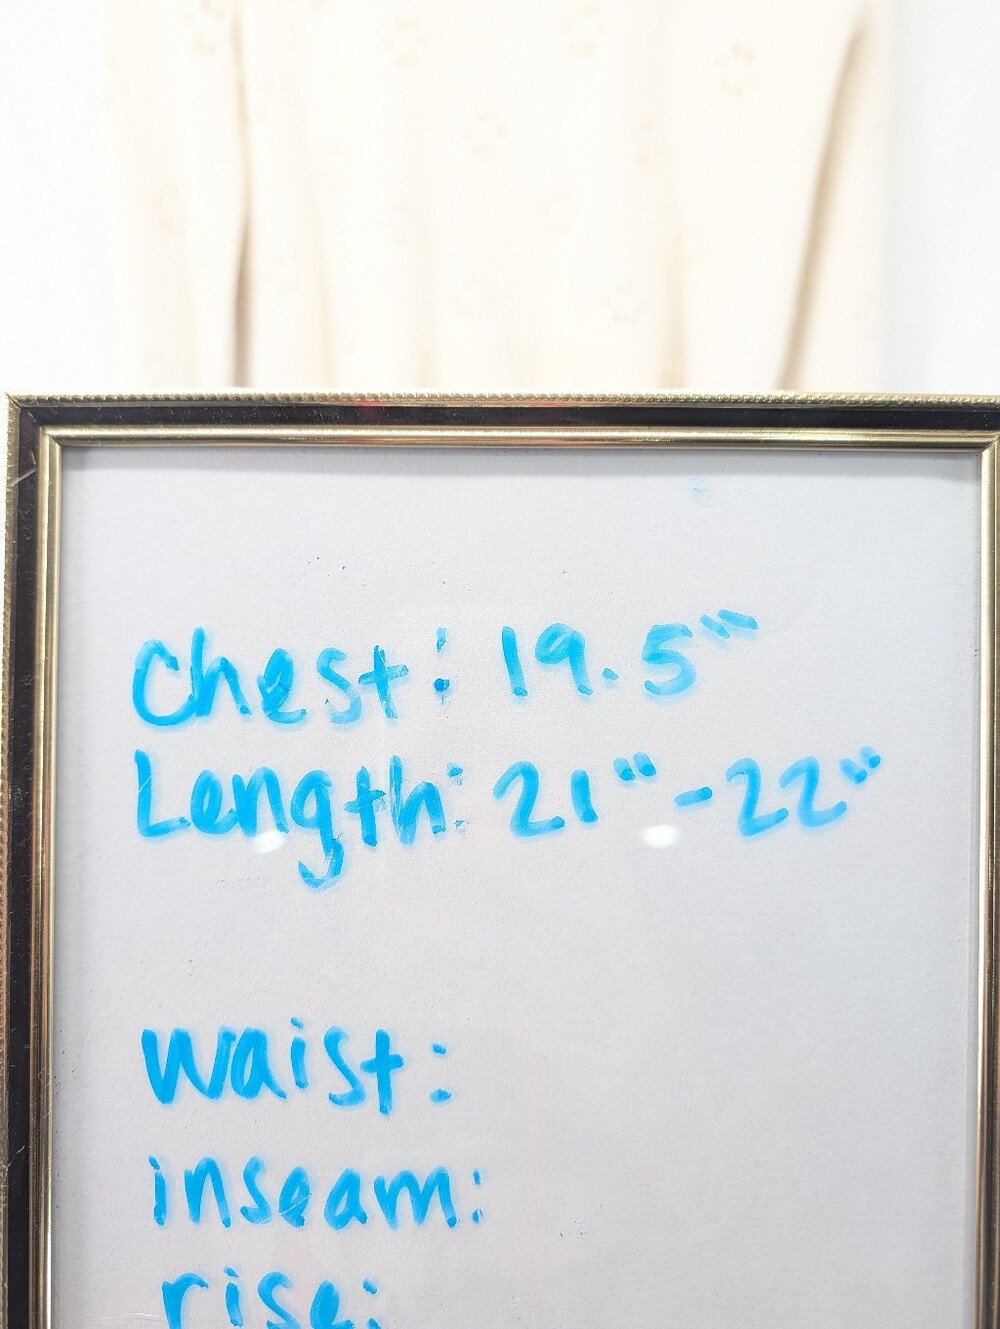 Chest: 19.5"
Length: 21"-22"
waist:
inseam:
rise: